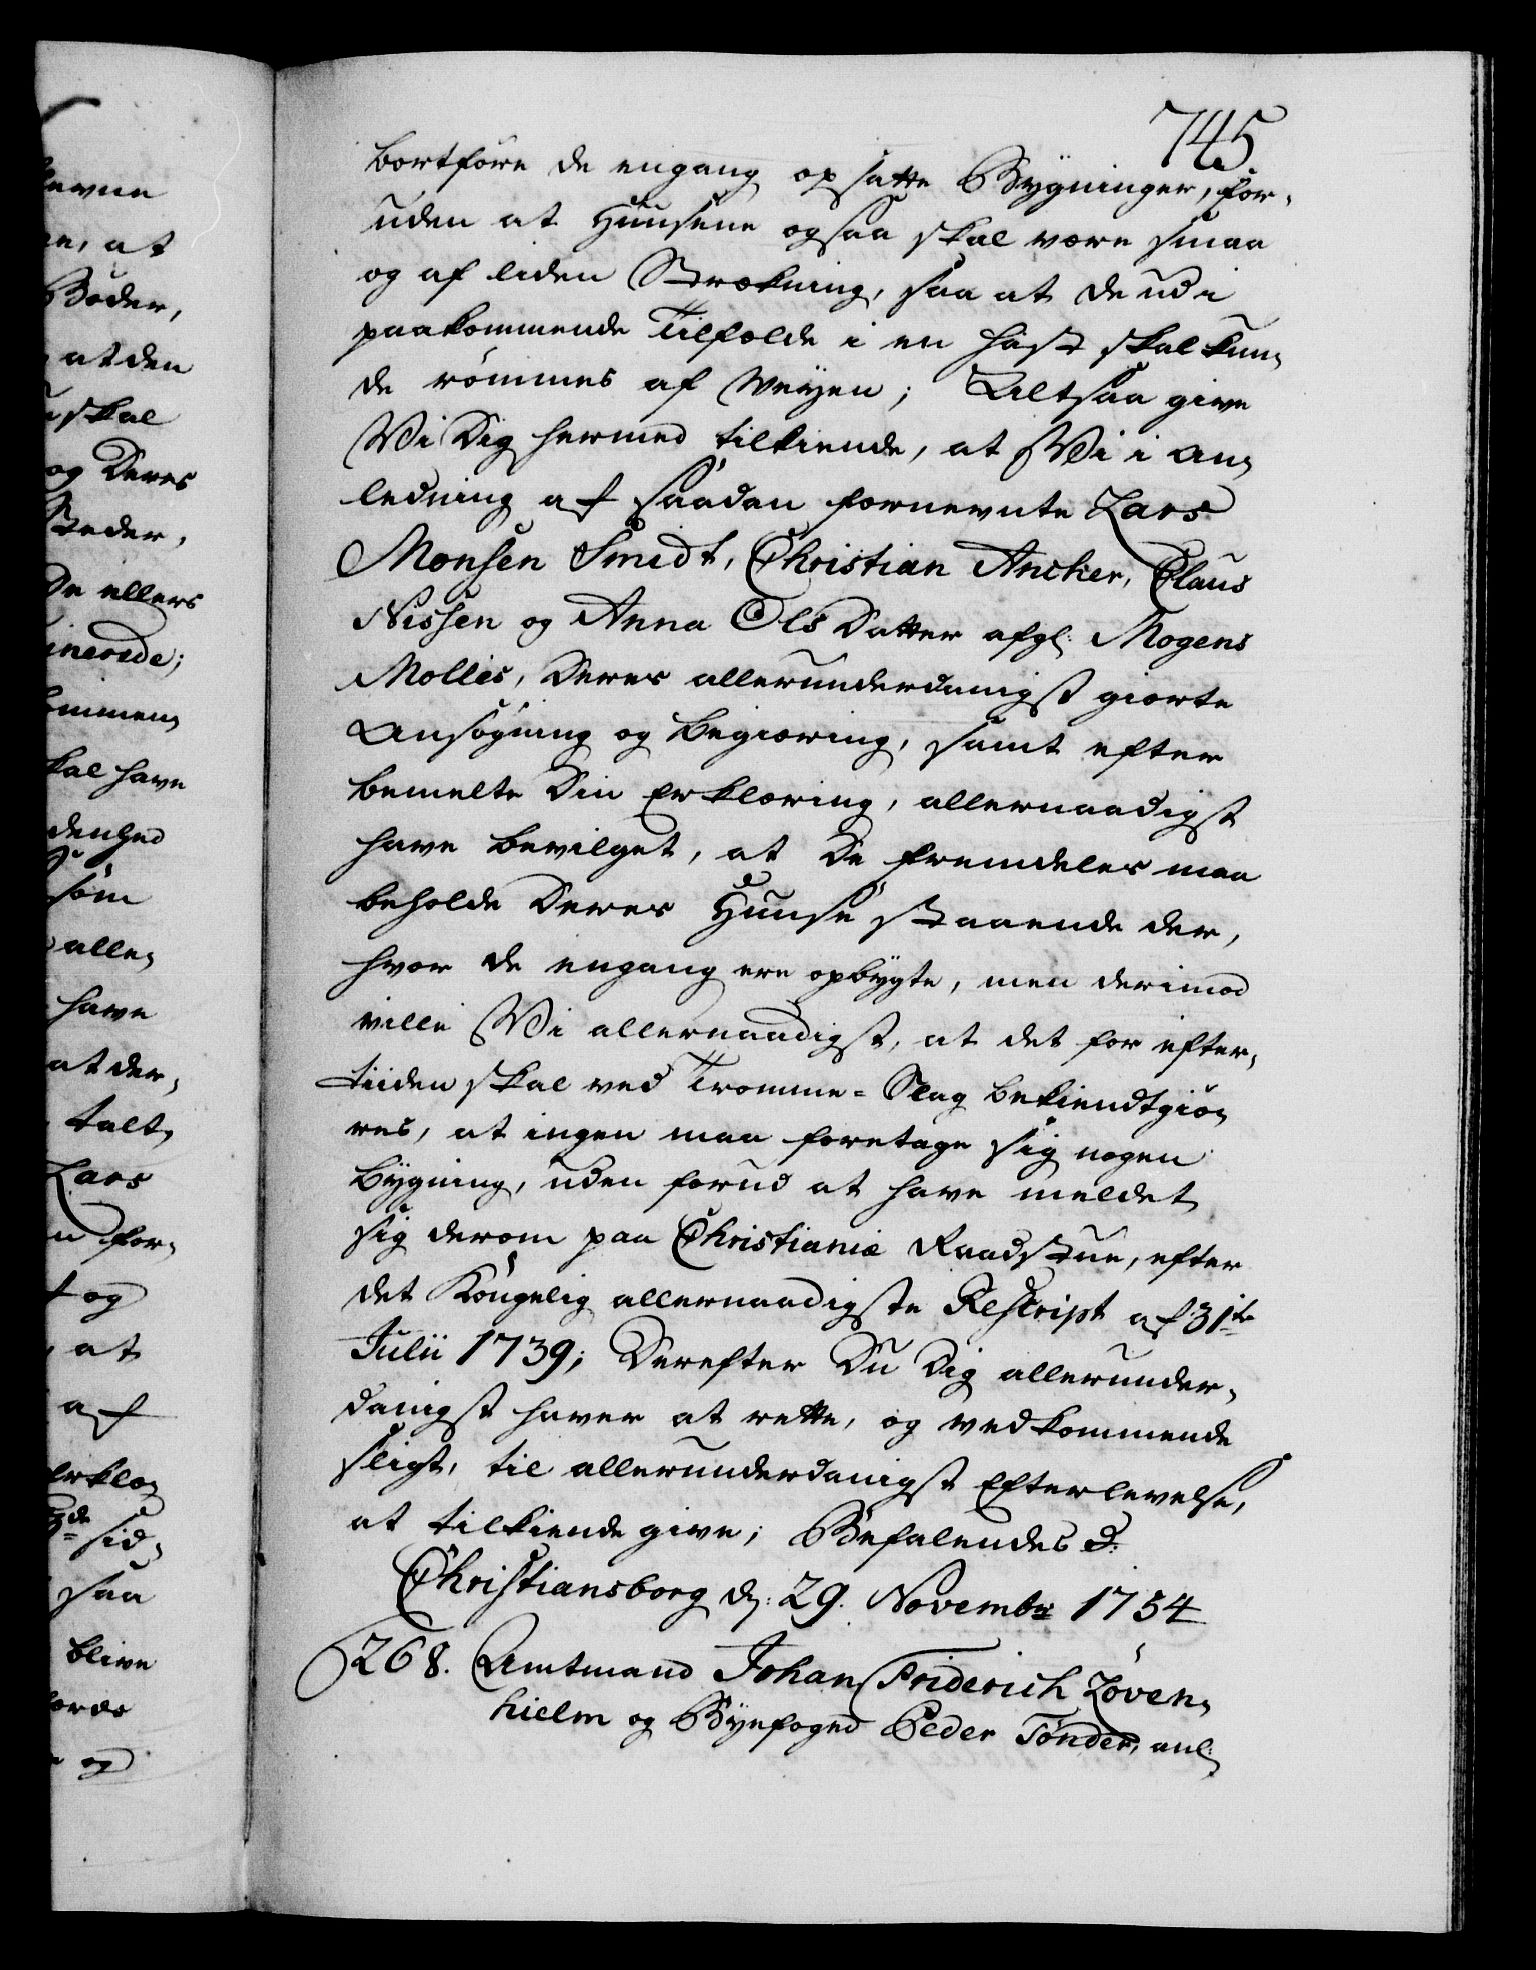 745
bortföre de engang opsatte Bygninger, for-
uden at Huusene ogsaa skal være smaa
og af liden Strækning, saa at de udi
paakommende Tilfælde i en Hast skal kun-
de römmes af Veyen; Altsaa give
Vi Dig hermed tilkiende, at Vi i An-
ledning af saadan fornevnte Lars
Monsen Smidt, Christian Ancher, Claus
Nissen og Anna Ols Datter afgl: Mogens
Mollies, Deres allerunderdanigst giorte
Ansögning og Begiæring, samt efter
bemelte Din Erklæring, allernaadigst
have bevilget, at De fremdeles maa
beholde Deres Huuse staaende der,
hvor de engang ere opbygte, men derimod
ville Vi allernaadigst, at det for efter-
tiiden skal ved Tromme-Slag bekiendtgiö-
res, at ingen maa foretage sig nogen
Bygning, uden forud at have meldet
sig derom paa Christianiæ Raadstue, efter
det Kongelig allernaadigste Rescript af 31te
Julii 1739; Derefter Du Dig allerunder-
danigst haver at rette, og vedkommende
sligt, til allerunderdanigst Efterlevelse,
at tilkiende give; Befalendes d:
Christiansborg d: 29. Novembr 1754
268. Amtmand Johan Friderich Löven-
hielm og Byefoged Peder Tonder, anl:
evne
re, at
Boder,
at den
skal
og Deres
Steder,
De ellers
inerede;
ommen-
kal have
denhed
söm
alle-
have
at der-
talt,
Lars
n for-
t og
, at
af
Erklæ-
3de sid-
saa
blive
og